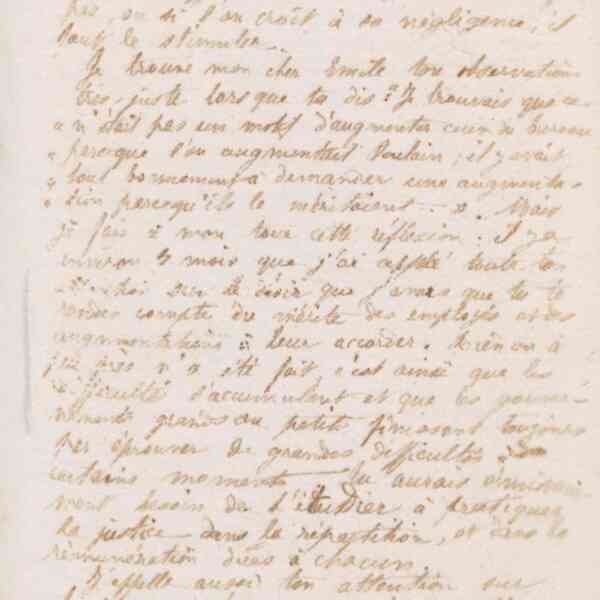 pas, ou si l'on croit à sa négligence, il
faut le stimuler.
Je trouve mon cher Emile ton observation
très juste lorsque tu dis : "Je trouvais que ce
" n'était pas un motif d'augmenter ceux du bureau
" parceque l'on augmentait Poulain ; il y avait
" tout bonnement à demander une augmenta-
" tion parcequ'ils le méritaient ... ". Mais
je fais à mon tour cette réflexion : Il y a
environ 3 mois que j'ai appelé toute ton
attention sur le désir que j'avais que tu te
rendes compte du mérite des employés et des
augmentations à leur accorder. Rien ou à
peu près n'a été fait c'est ainsi que les
difficultés s'accumulent et que les gouverne-
nements grands ou petits finissent toujours
par éprouver de grandes difficultés à
certains moments. Tu aurais
besoin de t'étudier à pratiquer
la justice dans la répartition, et dans la
rémunération dues à chacun.
J'appelle aussi ton attention sur